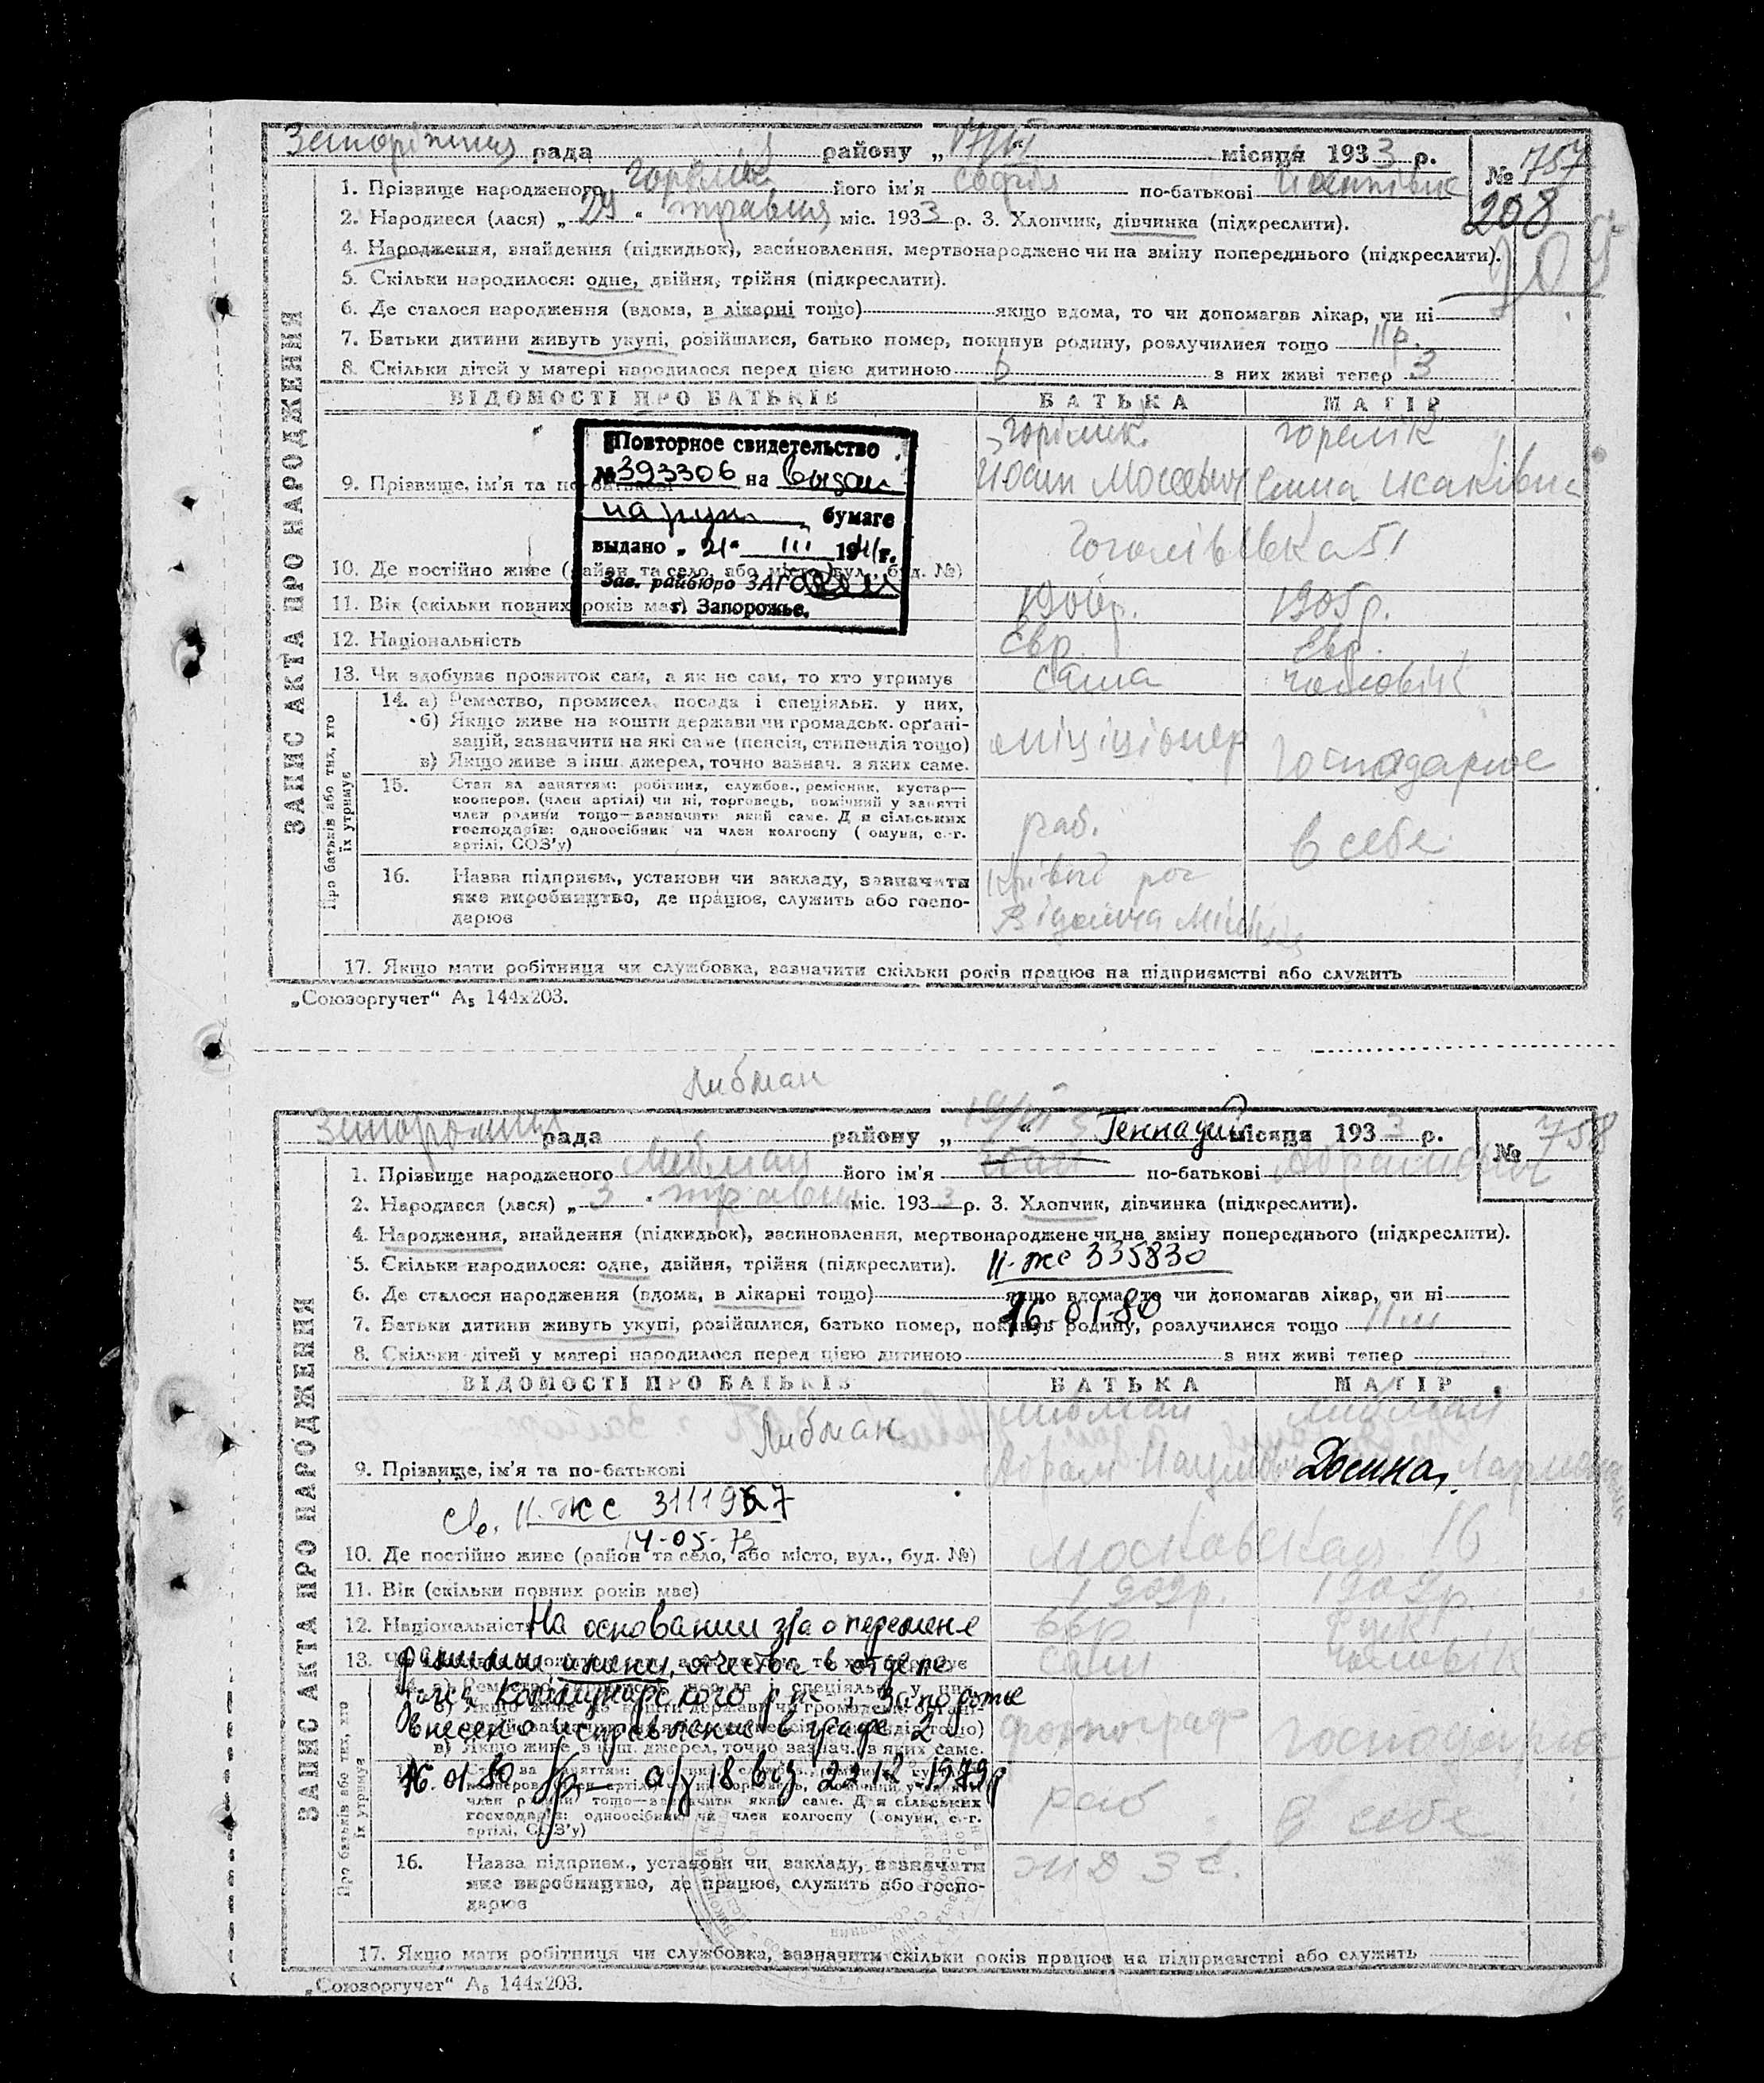 Запоріжжя рада району „17/VI“ місяця 1933 р. № 757
1. Прізвище народженого Горелік його ім'я Софія по-батькові
208
2. Народився (лася) „29“ травня міс. 1933 р. 3. Хлопчик, дівчинка (підкреслити).
4. Народження, знайдення (підкидьок), засиновлення, мертвонароджене чи на зміну попереднього (підкреслити).
5. Скільки народилося: одне, двійня, трійня (підкреслити).
6. Де сталося народження (вдома, в лікарні тощо) якщо вдома, то чи допомагав лікар, чи ні
7. Батьки дитини живуть укупі, розійшлися, батько помер, покинув родину, розлучилися тощо 11 р.
8. Скільки дітей у матері народилося перед цією дитиною 6 з них живі тепер 3
ЗАПИС АКТА ПРО НАРОДЖЕННЯ
ВІДОМОСТІ ПРО БАТЬКІВ БАТЬКА МАТІР
Горелік
9. Прізвище, ім'я та по-батькові Исаківна
Повторное свидетельство
№ 393306 на
бумаге
выдано „21“ III 1941 г.
Зав. райбюро ЗАГС
г. Запорожье.
10. Де постійно живе (район та село, або місто, вул., буд. №) 51
11. Вік (скільки повних років має) 1906р. 1905р.
12. Національність Євр. Євр.
13. Чи здобуває прожиток сам, а як не сам, то хто утримує сама чоловік
Про батьків або тих, хто їх утримує
14. а) Ремество, промисел, посада і спеціяльн. у них,
б) Якщо живе на кошти держави чи громадськ. органі-
зацій, зазначити на які саме (пенсія, стипендія тощо) міліціонер
в) Якщо живе з інш. джерел, точно зазнач. з яких саме. Господарює
15. Стан за заняттям: робітник, службов., ремісник, кустар—
кооперов. (член артілі) чи ні, торговець, помічний у занятті
член родини тощо—зазначити який саме. Для сільських
господарів: одноосібник чи член колгоспу (комуни, с.-г.
артілі, СОЗ'у) раб. в себе
16. Назва підприєм., установи чи закладу, зазначити Кривий рог
яке виробництво, де працює, служить або госпо-
дарює
17. Якщо мати робітниця чи службовка, зазначити скільки років працює на підприємстві або служить
„Союзоргучет“ А5 144х203.
Либман
Запоріжжя рада району „19/VI“ місяця 1933 р. № 758
Геннадий
1. Прізвище народженого Либман його ім'я по-батькові Абрамович
2. Народився (лася) „3“ травня міс. 1933 р. 3. Хлопчик, дівчинка (підкреслити).
4. Народження, знайдення (підкидьок), засиновлення, мертвонароджене чи на зміну попереднього (підкреслити).
5. Скільки народилося: одне, двійня, трійня (підкреслити). II-жс 335830
6. Де сталося народження (вдома, в лікарні тощо) якщо вдома, то чи допомагав лікар, чи ні
16-01-80
7. Батьки дитини живуть укупі, розійшлися, батько помер, покинув родину, розлучилися тощо
8. Скільки дітей у матері народилося перед цією дитиною з них живі тепер
ЗАПИС АКТА ПРО НАРОДЖЕННЯ
ВІДОМОСТІ ПРО БАТЬКІВ БАТЬКА МАТІР
Либман Либман Либман
9. Прізвище, ім'я та по-батькові Абрам
св. II-жс 311197
14-05-
10. Де постійно живе (район та село, або місто, вул., буд. №) Московская 16
11. Вік (скільки повних років має) 1902р. 1909р.
12. Національність Євр
На основании з/а о перемене
13. сам чоловік
фамилии, имени, отчества в отделе
загс Коммунарского р-на г. Запорожье
внесено исправление в графе 2
фотограф Господарює
16.01.80 а/з 18 1979г
Про батьків або тих, хто їх утримує
член родини тощо—зазначити який саме. Для сільських
господарів: одноосібник чи член колгоспу (комуни, с.-г.
артілі, СОЗ'у) раб в себе
16. Назва підприєм., установи чи закладу, зазначити
яке виробництво, де працює, служить або госпо-
дарює
17. Якщо мати робітниця чи службовка, зазначити скільки років працює на підприємстві або служить
„Союзоргучет“ А5 144х203.